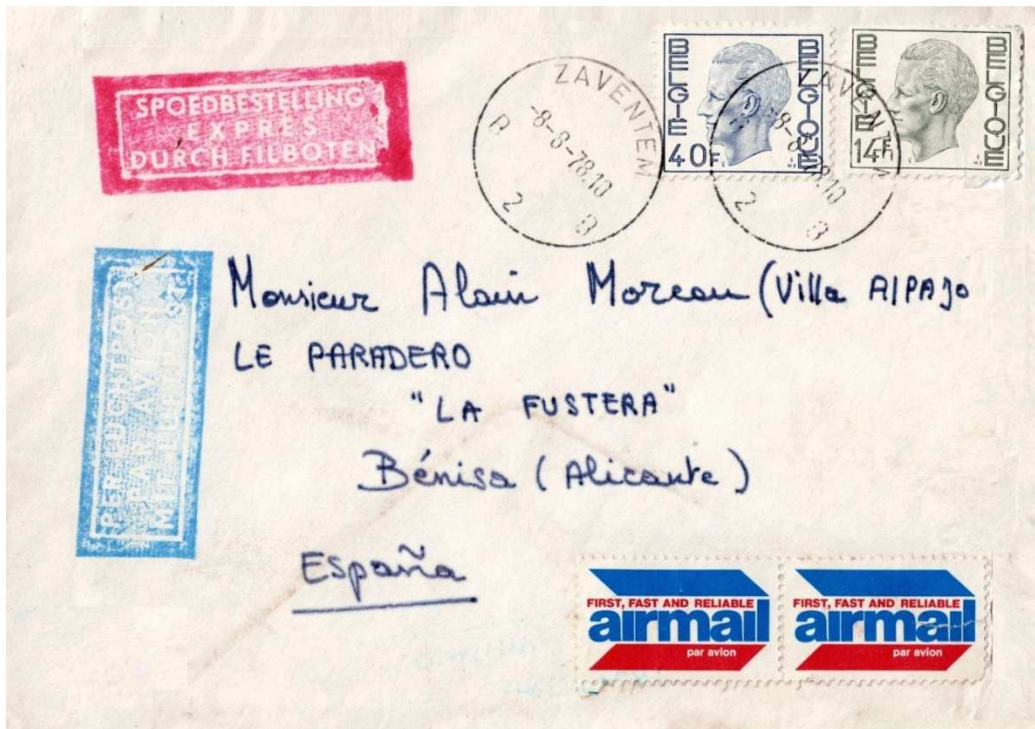 SPOEDBESTELLING
EXPRES
DURCH EILBOTEN
ZAVENTEM
-8-8-78.10
B 2 B
BELGIË BELGIQUE
40F
BELGIË BELGIQUE
14F
ZAVENTEM
PER LUCHTPOST
PAR AVION
MIT LUFTPOST
Monsieur Alain Moreau (Villa AlPAJo
LE PARADERO
"LA FUSTERA"
Bénisa (Alicante)
España
FIRST, FAST AND RELIABLE
airmail
par avion
FIRST, FAST AND RELIABLE
airmail
par avion